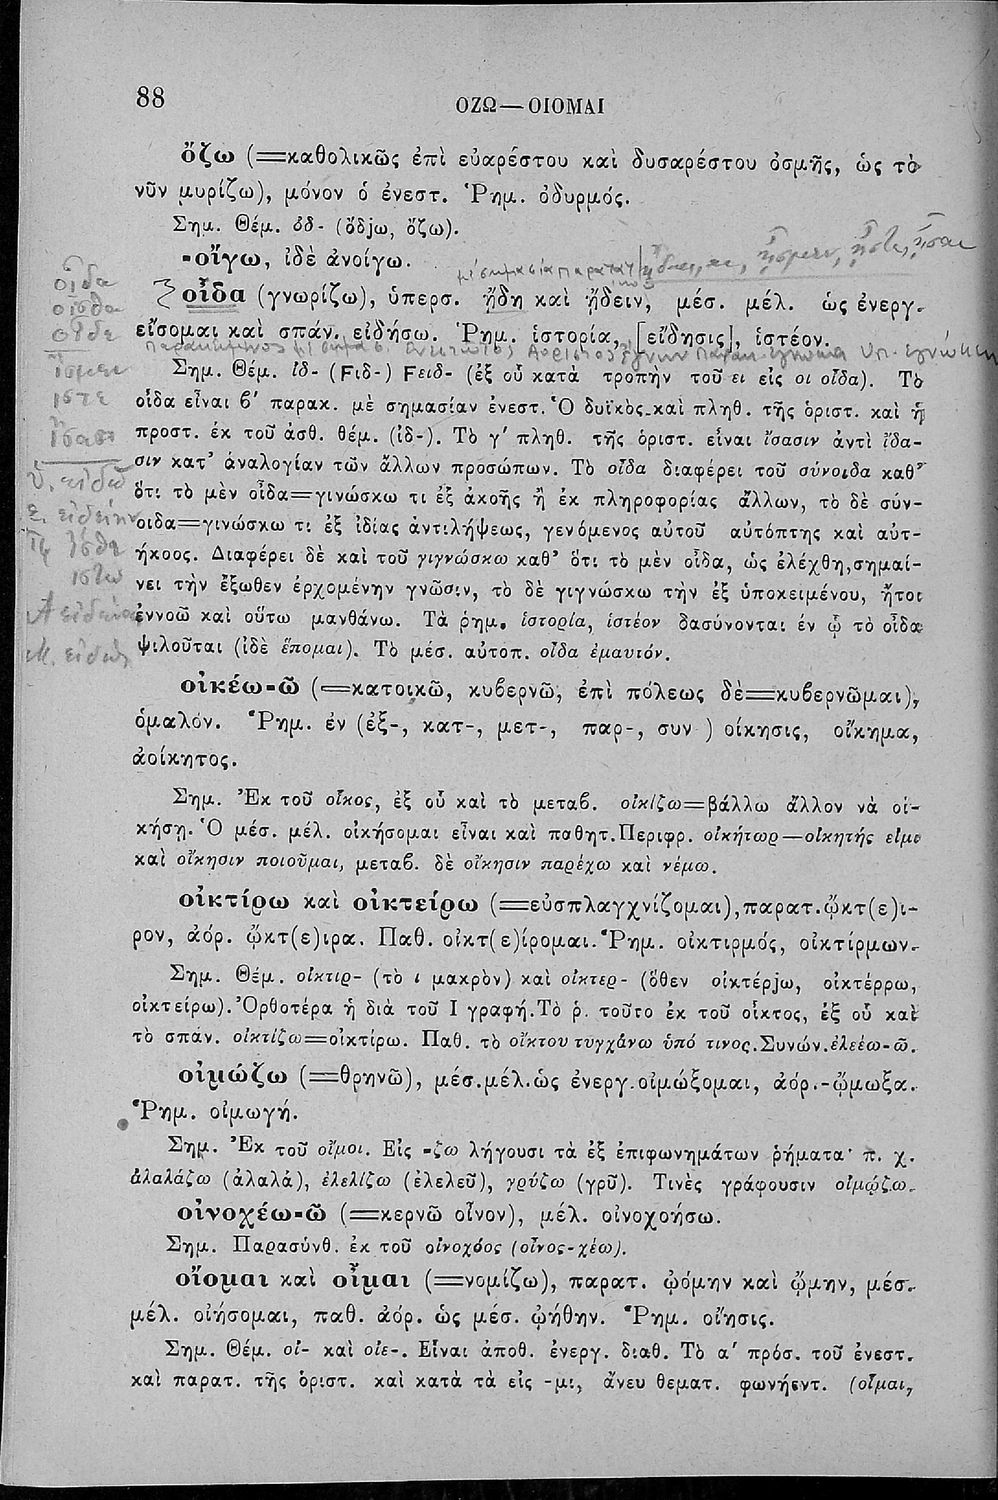 88
ΟΖΩ—ΟΙΟΜΑΙ
ὄζω (=καθολικῶς ἐπὶ εὐαρέστου καὶ δυσαρέστου ὀσμῆς, ὡς τὸ
νῦν μυρίζω), μόνον ὁ ἐνεστ. Ῥημ. ὀδυρμός.
Σημ. Θέμ. ὀδ- (ὄδjω, ὄζω).
-οἴγω, ἰδὲ ἀνοίγω.
ᾖσμεν, ᾖστε, ᾖσαν
οἶδα (γνωρίζω), ὑπερσ. ᾔδη καὶ ᾔδειν, μέσ. μέλ. ὡς ἐνεργ.
εἴσομαι καὶ σπάν. εἰδήσω. Ῥημ. ἱστορία, [εἴδησις], ἱστέον.
Σημ. Θέμ. ἰδ- (Fιδ-) Fειδ- (ἐξ οὗ κατὰ τροπὴν τοῦ ει εἰς οι οἶδα). Τὸ
οἶδα εἶναι β′ παρακ. μὲ σημασίαν ἐνεστ. Ὁ δυϊκὸς καὶ πληθ. τῆς ὁριστ. καὶ ἡ
προστ. ἐκ τοῦ ἀσθ. θέμ. (ἰδ-). Τὸ γ′ πληθ. τῆς ὁριστ. εἶναι ἴσασιν ἀντὶ ἴδα-
σιν κατ' ἀναλογίαν τῶν ἄλλων προσώπων. Τὸ οἶδα διαφέρει τοῦ σύνοιδα καθ'
ὅτι τὸ μὲν οἶδα=γινώσκω τι ἐξ ἀκοῆς ἢ ἐκ πληροφορίας ἄλλων, τὸ δὲ σύν-
οιδα=γινώσκω τι ἐξ ἰδίας ἀντιλήψεως, γενόμενος αὐτοῦ αὐτόπτης καὶ αὐτ-
ήκοος. Διαφέρει δὲ καὶ τοῦ γιγνώσκω καθ' ὅτι τὸ μὲν οἶδα, ὡς ἐλέχθη,σημαί-
νει τὴν ἔξωθεν ἐρχομένην γνῶσιν, τὸ δὲ γιγνώσκω τὴν ἐξ ὑποκειμένου, ἤτοι
ἐννοῶ καὶ οὕτω μανθάνω. Τὰ ῥημ. ἱστορία, ἱστέον δασύνονται ἐν ᾧ τὸ οἶδα
ψιλοῦται (ἰδὲ ἕπομαι). Τὸ μέσ. αὐτοπ. οἶδα ἐμαυτόν.
οἶδα
οἶσθα
οἶδε
ἴσμεν
ἴστε
ἴσασι
Ὑ. εἰδῶ
Ε. εἰδείην
Πρ ἴσθι
ἴστω
Α εἰδέναι
Μ. εἰδώς
οἰκέω-ῶ (=κατοικῶ, κυβερνῶ, ἐπὶ πόλεως δὲ=κυβερνῶμαι),
ὁμαλόν. Ῥημ. ἐν (ἐξ-, κατ-, μετ-, παρ-, συν ) οίκησις, οἴκημα,
ἀοίκητος.
Σημ. Ἐκ τοῦ οἶκος, ἐξ οὗ καὶ τὸ μεταβ. οἰκίζω=βάλλω ἄλλον νὰ οἰ-
κήσῃ. Ὁ μέσ. μέλ. οἰκήσομαι εἶναι καὶ παθητ.Περιφρ. οἰκήτωρ—οἰκητής εἰμι
καὶ οἴκησιν ποιοῦμαι, μεταβ. δὲ οἴκησιν παρέχω καὶ νέμω.
οἰκτίρω καὶ οἰκτείρω (=εὐσπλαγχνίζομαι),παρατ.ᾤκτ(ε)ι-
ρον, ἀόρ. ᾤκτ(ε)ιρα. Παθ. οἰκτ(ε)ίρομαι. Ῥημ. οἰκτιρμός, οἰκτίρμων.
Σημ. Θέμ. οἰκτιρ- (τὸ ι μακρὸν) καὶ οἰκτερ- (ὅθεν οἰκτέρjω, οἰκτέρρω,
οἰκτείρω). Ὀρθοτέρα ἡ διὰ τοῦ Ι γραφή.Τὸ ῥ. τοῦτο ἐκ τοῦ οἶκτος, ἐξ οὗ καὶ
τὸ σπάν. οἰκτίζω=οἰκτίρω. Παθ. τὸ οἴκτου τυγχάνω ὑπό τινος.Συνών.ἐλεέω-ῶ.
οἰμώζω (=θρηνῶ), μέσ.μέλ.ὡς ἐνεργ.οἰμώξομαι, ἀόρ.-ᾤμωξα.
Ῥημ. οἰμωγή.
Σημ. Ἐκ τοῦ οἴμοι. Εἰς -ζω λήγουσι τὰ ἐξ ἐπιφωνημάτων ῥήματα· π. χ.
ἀλαλάζω (ἀλαλά), ἐλελίζω (ἐλελεῦ), γρύζω (γρῦ). Τινὲς γράφουσιν οἰμῴζω.
οἰνοχέω-ῶ (=κερνῶ οἶνον), μέλ. οἰνοχοήσω.
Σημ. Παρασύνθ. ἐκ τοῦ οἰνοχόος (οἶνος-χέω).
οἴομαι καὶ οἶμαι (=νομίζω), παρατ. ᾠόμην καὶ ᾤμην, μέσ.
μέλ. οἰήσομαι, παθ. ἀόρ. ὡς μέσ. ᾠήθην. Ῥημ. οἴησις.
Σημ. Θέμ. οἰ- καὶ οἰε-. Εἶναι ἀποθ. ἐνεργ. διαθ. Τὸ α′ πρόσ. τοῦ ἐνεστ.
καὶ παρατ. τῆς ὁριστ. καὶ κατὰ τὰ εἰς -μι, ἄνευ θεματ. φωνήεντ. (οἶμαι,